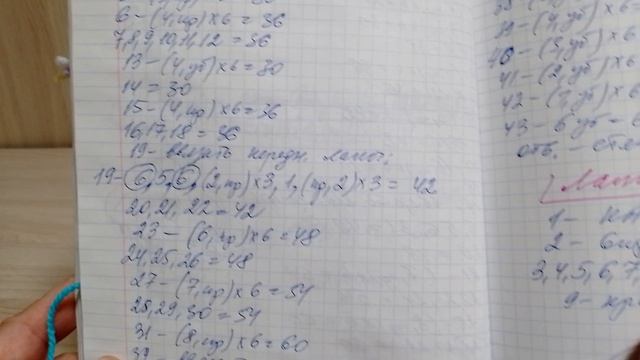 6 - (4, пр) x 6 = 36
7,8,9,10,11,12 = 36
13 - (4, уб) x 6 = 30
14 = 30
15 - (4, пр) x 6 = 36
16,17,18 = 36
19 - ввязать передн. лапы;
19 - 6, 5, 6, (2, пр) x 3, 1, (пр, 2) x 3 = 42
20, 21, 22 = 42
23 - (6, пр) x 6 = 48
24, 25, 26 = 48
27 - (7, пр) x 6 = 54
28, 29, 30 = 54
31 - (8, пр) x 6 = 60
39 - (4, уб) x 6
40 - (3, уб) x 6
41 - (2, уб) x 6
42 - (1, уб) x 6
43 - 6 уб =
отв. -
1 -
2 -
3, 4, 5, 6, 7
9 -